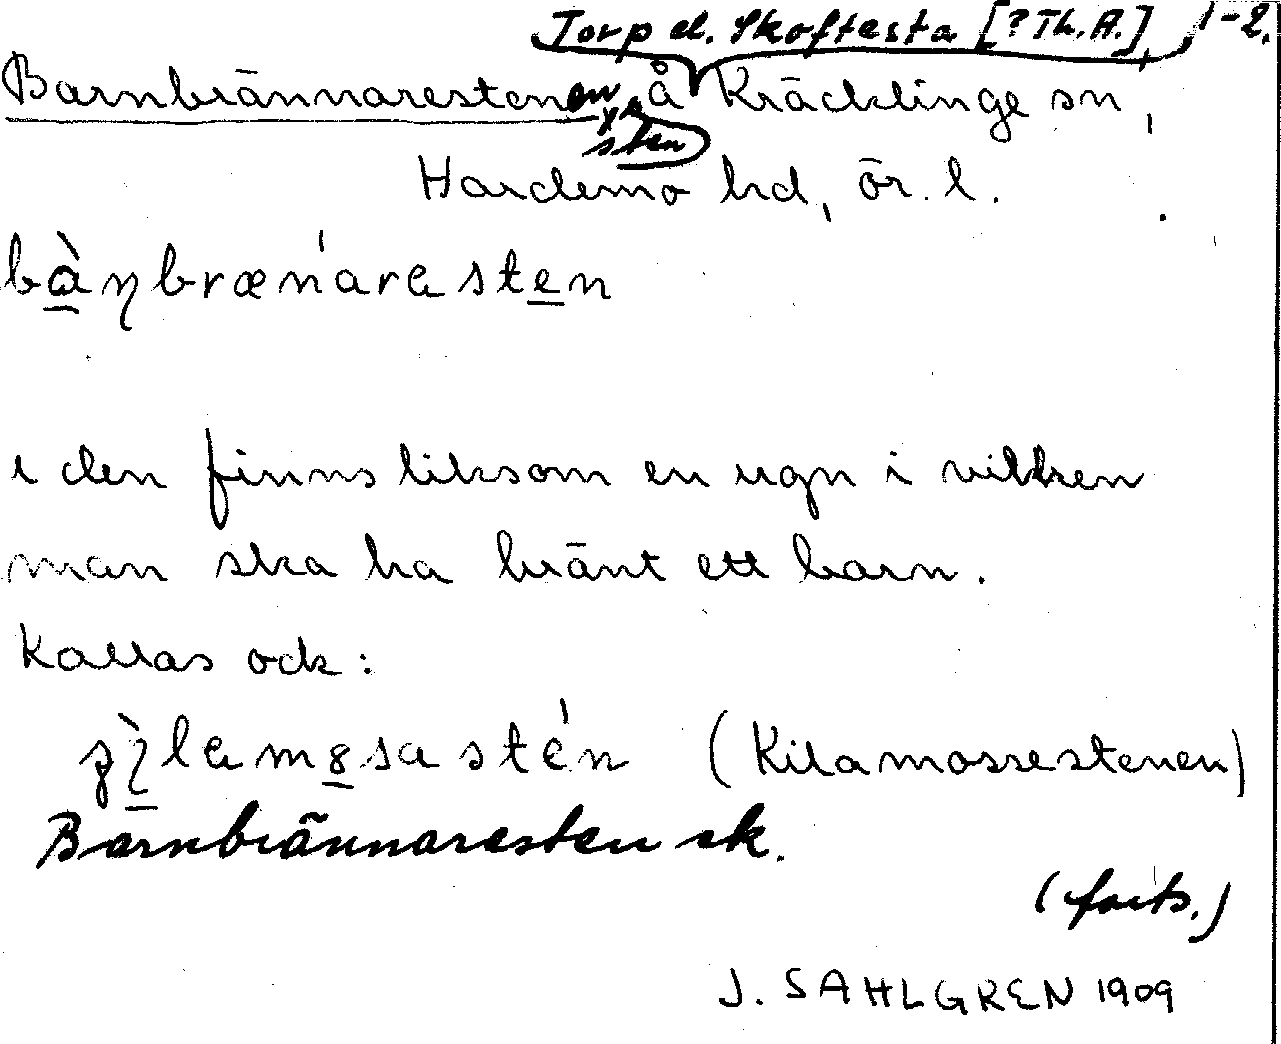 Torp el. Skoftesta [? Th. A.], 1-2.
Barnbrännarestenen, å Kräcklinge sn,
sten
Hardemo hd, ör. l.
bàṇbræn'arɐsten
i den finns liksom en ugn i vilken
man ska ha bränt ett barn.
Kallas ock:
stén (Kilamossestenen)
Barnbrännaresten sk.
(forts.)
J. SAHLGREN 1909